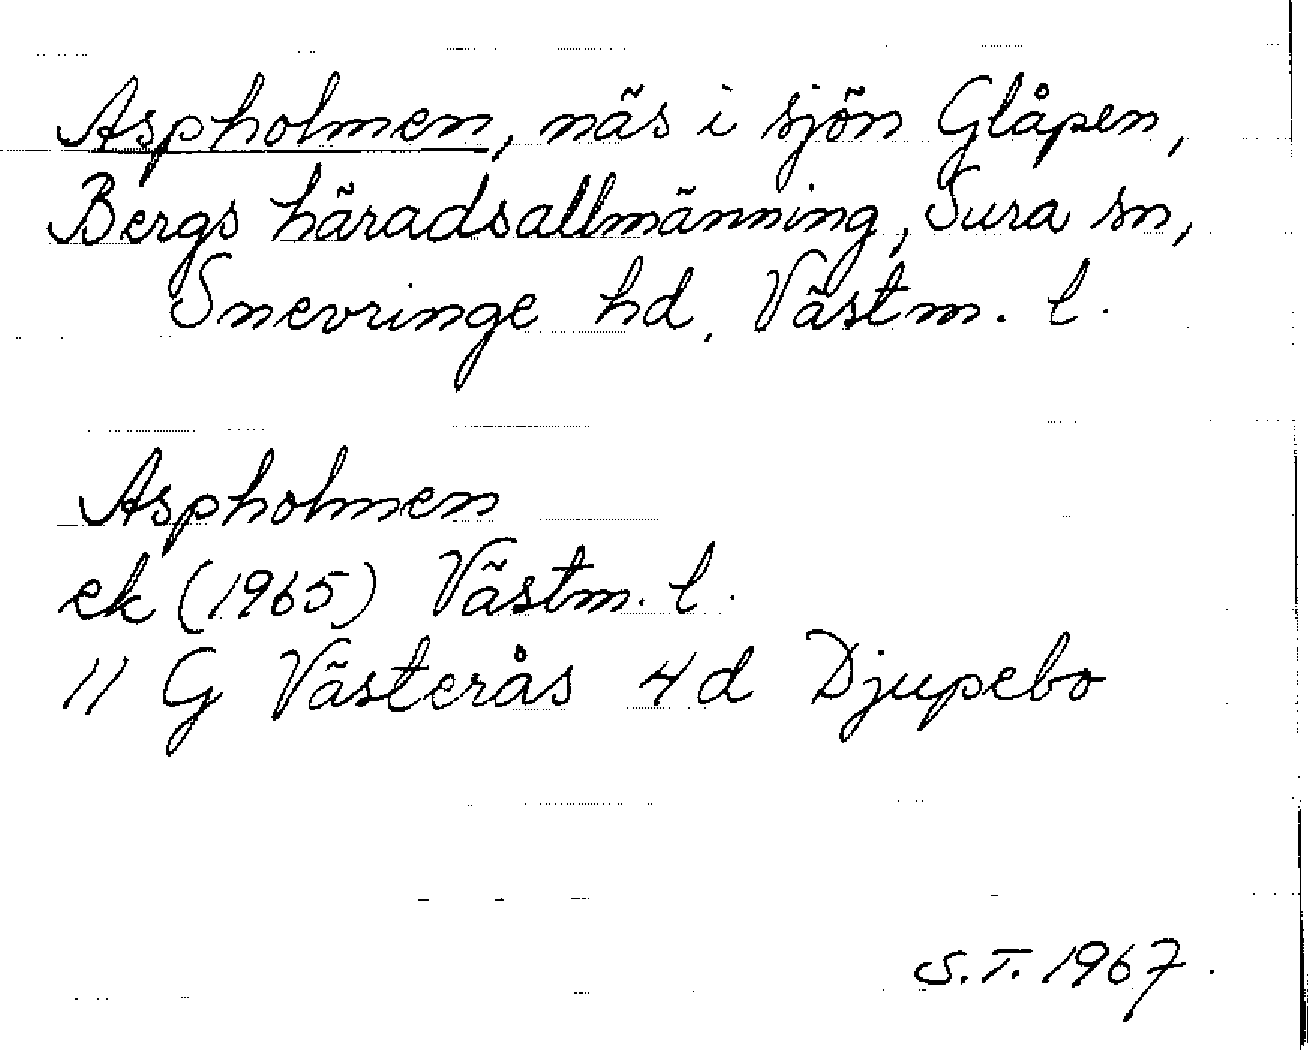 Aspholmen, näs i sjön Glåpen,
Bergs häradsallmänning, Sura sn,
Snevringe hd, Västm. l.
Aspholmen
ek (1965) Västm. l.
11 G Västerås 4d Djupebo
S.T. 1967.